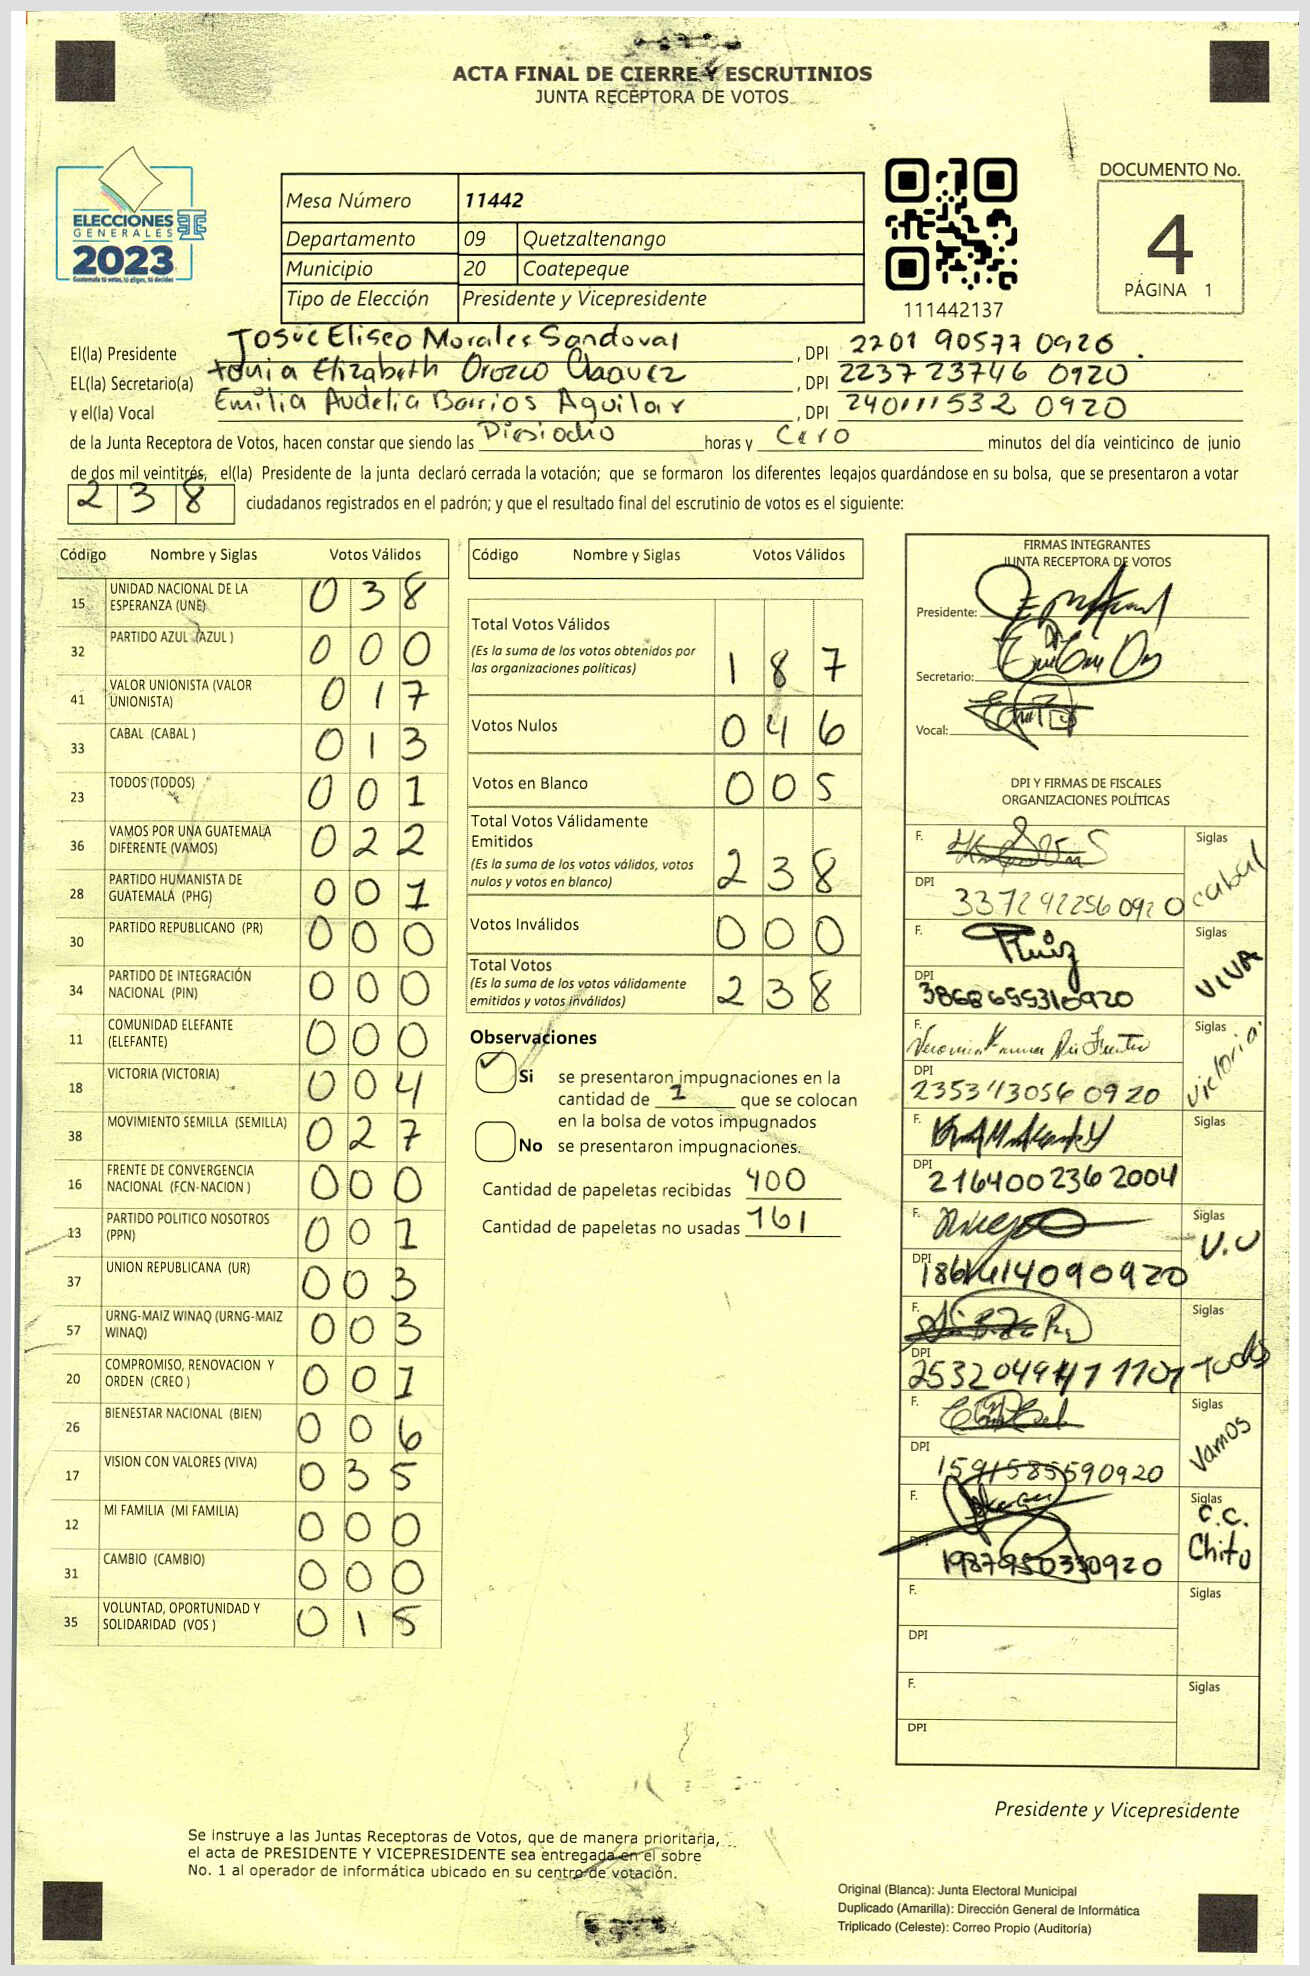 ACTA FINAL DE CIERRE Y ESCRUTINIOS
JUNTA RECEPTORA DE VOTOS
ELECCIONES
GENERALES
2023
Guatemala tú votas, tú eliges, tú decides
Mesa Número 11442
Departamento 09 Quetzaltenango
Municipio 20 Coatepeque
Tipo de Elección Presidente y Vicepresidente
111442137
DOCUMENTO No.
4
PÁGINA 1
El(la) Presidente Josue Eliseo Morales Sandoval, DPI 2201 90577 0920.
EL(la) Secretario(a) Elizabeth Orozco, DPI 223723746 0920
y el(la) Vocal Emilia Audelia Barrios Aguilar, DPI 240111532 0920
de la Junta Receptora de Votos, hacen constar que siendo las Diesiocho horas y Cero minutos del día veinticinco de junio
de dos mil veintitrés, el(la) Presidente de la junta declaró cerrada la votación; que se formaron los diferentes legajos guardándose en su bolsa, que se presentaron a votar
238 ciudadanos registrados en el padrón; y que el resultado final del escrutinio de votos es el siguiente:
Código Nombre y Siglas Votos Válidos
15 UNIDAD NACIONAL DE LA ESPERANZA (UNE) 038
32 PARTIDO AZUL (AZUL ) 000
41 VALOR UNIONISTA (VALOR UNIONISTA) 017
33 CABAL (CABAL ) 013
23 TODOS (TODOS) 001
36 VAMOS POR UNA GUATEMALA DIFERENTE (VAMOS) 022
28 PARTIDO HUMANISTA DE GUATEMALA (PHG) 001
30 PARTIDO REPUBLICANO (PR) 000
34 PARTIDO DE INTEGRACIÓN NACIONAL (PIN) 000
11 COMUNIDAD ELEFANTE (ELEFANTE) 000
18 VICTORIA (VICTORIA) 004
38 MOVIMIENTO SEMILLA (SEMILLA) 027
16 FRENTE DE CONVERGENCIA NACIONAL (FCN-NACION ) 000
13 PARTIDO POLITICO NOSOTROS (PPN) 001
37 UNION REPUBLICANA (UR) 003
57 URNG-MAIZ WINAQ (URNG-MAIZ WINAQ) 003
20 COMPROMISO, RENOVACION Y ORDEN (CREO ) 001
26 BIENESTAR NACIONAL (BIEN) 006
17 VISION CON VALORES (VIVA) 035
12 MI FAMILIA (MI FAMILIA) 000
31 CAMBIO (CAMBIO) 000
35 VOLUNTAD, OPORTUNIDAD Y SOLIDARIDAD (VOS ) 015
Código Nombre y Siglas Votos Válidos
Total Votos Válidos 187
(Es la suma de los votos obtenidos por
las organizaciones políticas)
Votos Nulos 046
Votos en Blanco 005
Total Votos Válidamente
Emitidos 238
(Es la suma de los votos válidos, votos
nulos y votos en blanco)
Votos Inválidos 000
Total Votos 238
(Es la suma de los votos válidamente
emitidos y votos inválidos)
Observaciones
Si se presentaron impugnaciones en la
cantidad de 1 que se colocan
en la bolsa de votos impugnados
No se presentaron impugnaciones.
Cantidad de papeletas recibidas 400
Cantidad de papeletas no usadas 161
FIRMAS INTEGRANTES
JUNTA RECEPTORA DE VOTOS
Presidente:
Secretario:
Vocal:
DPI Y FIRMAS DE FISCALES
ORGANIZACIONES POLÍTICAS
F. Siglas cabal
DPI 337292256 0920
F. Ruiz Siglas VIVA
DPI 3868655310920
F. Siglas victoria
DPI 235343056 0920
F. Siglas
DPI 2164002362004
F. Siglas V.U
DPI
F. Siglas Todos
DPI
F. Siglas Vamos
DPI 1591585590920
F. Siglas C.C.
Chito
DPI 1987950330920
F. Siglas
DPI
F. Siglas
DPI
Presidente y Vicepresidente
Se instruye a las Juntas Receptoras de Votos, que de manera prioritaria,
el acta de PRESIDENTE Y VICEPRESIDENTE sea entregada en el sobre
No. 1 al operador de informática ubicado en su centro de votación.
Original (Blanca): Junta Electoral Municipal
Duplicado (Amarilla): Dirección General de Informática
Triplicado (Celeste): Correo Propio (Auditoría)